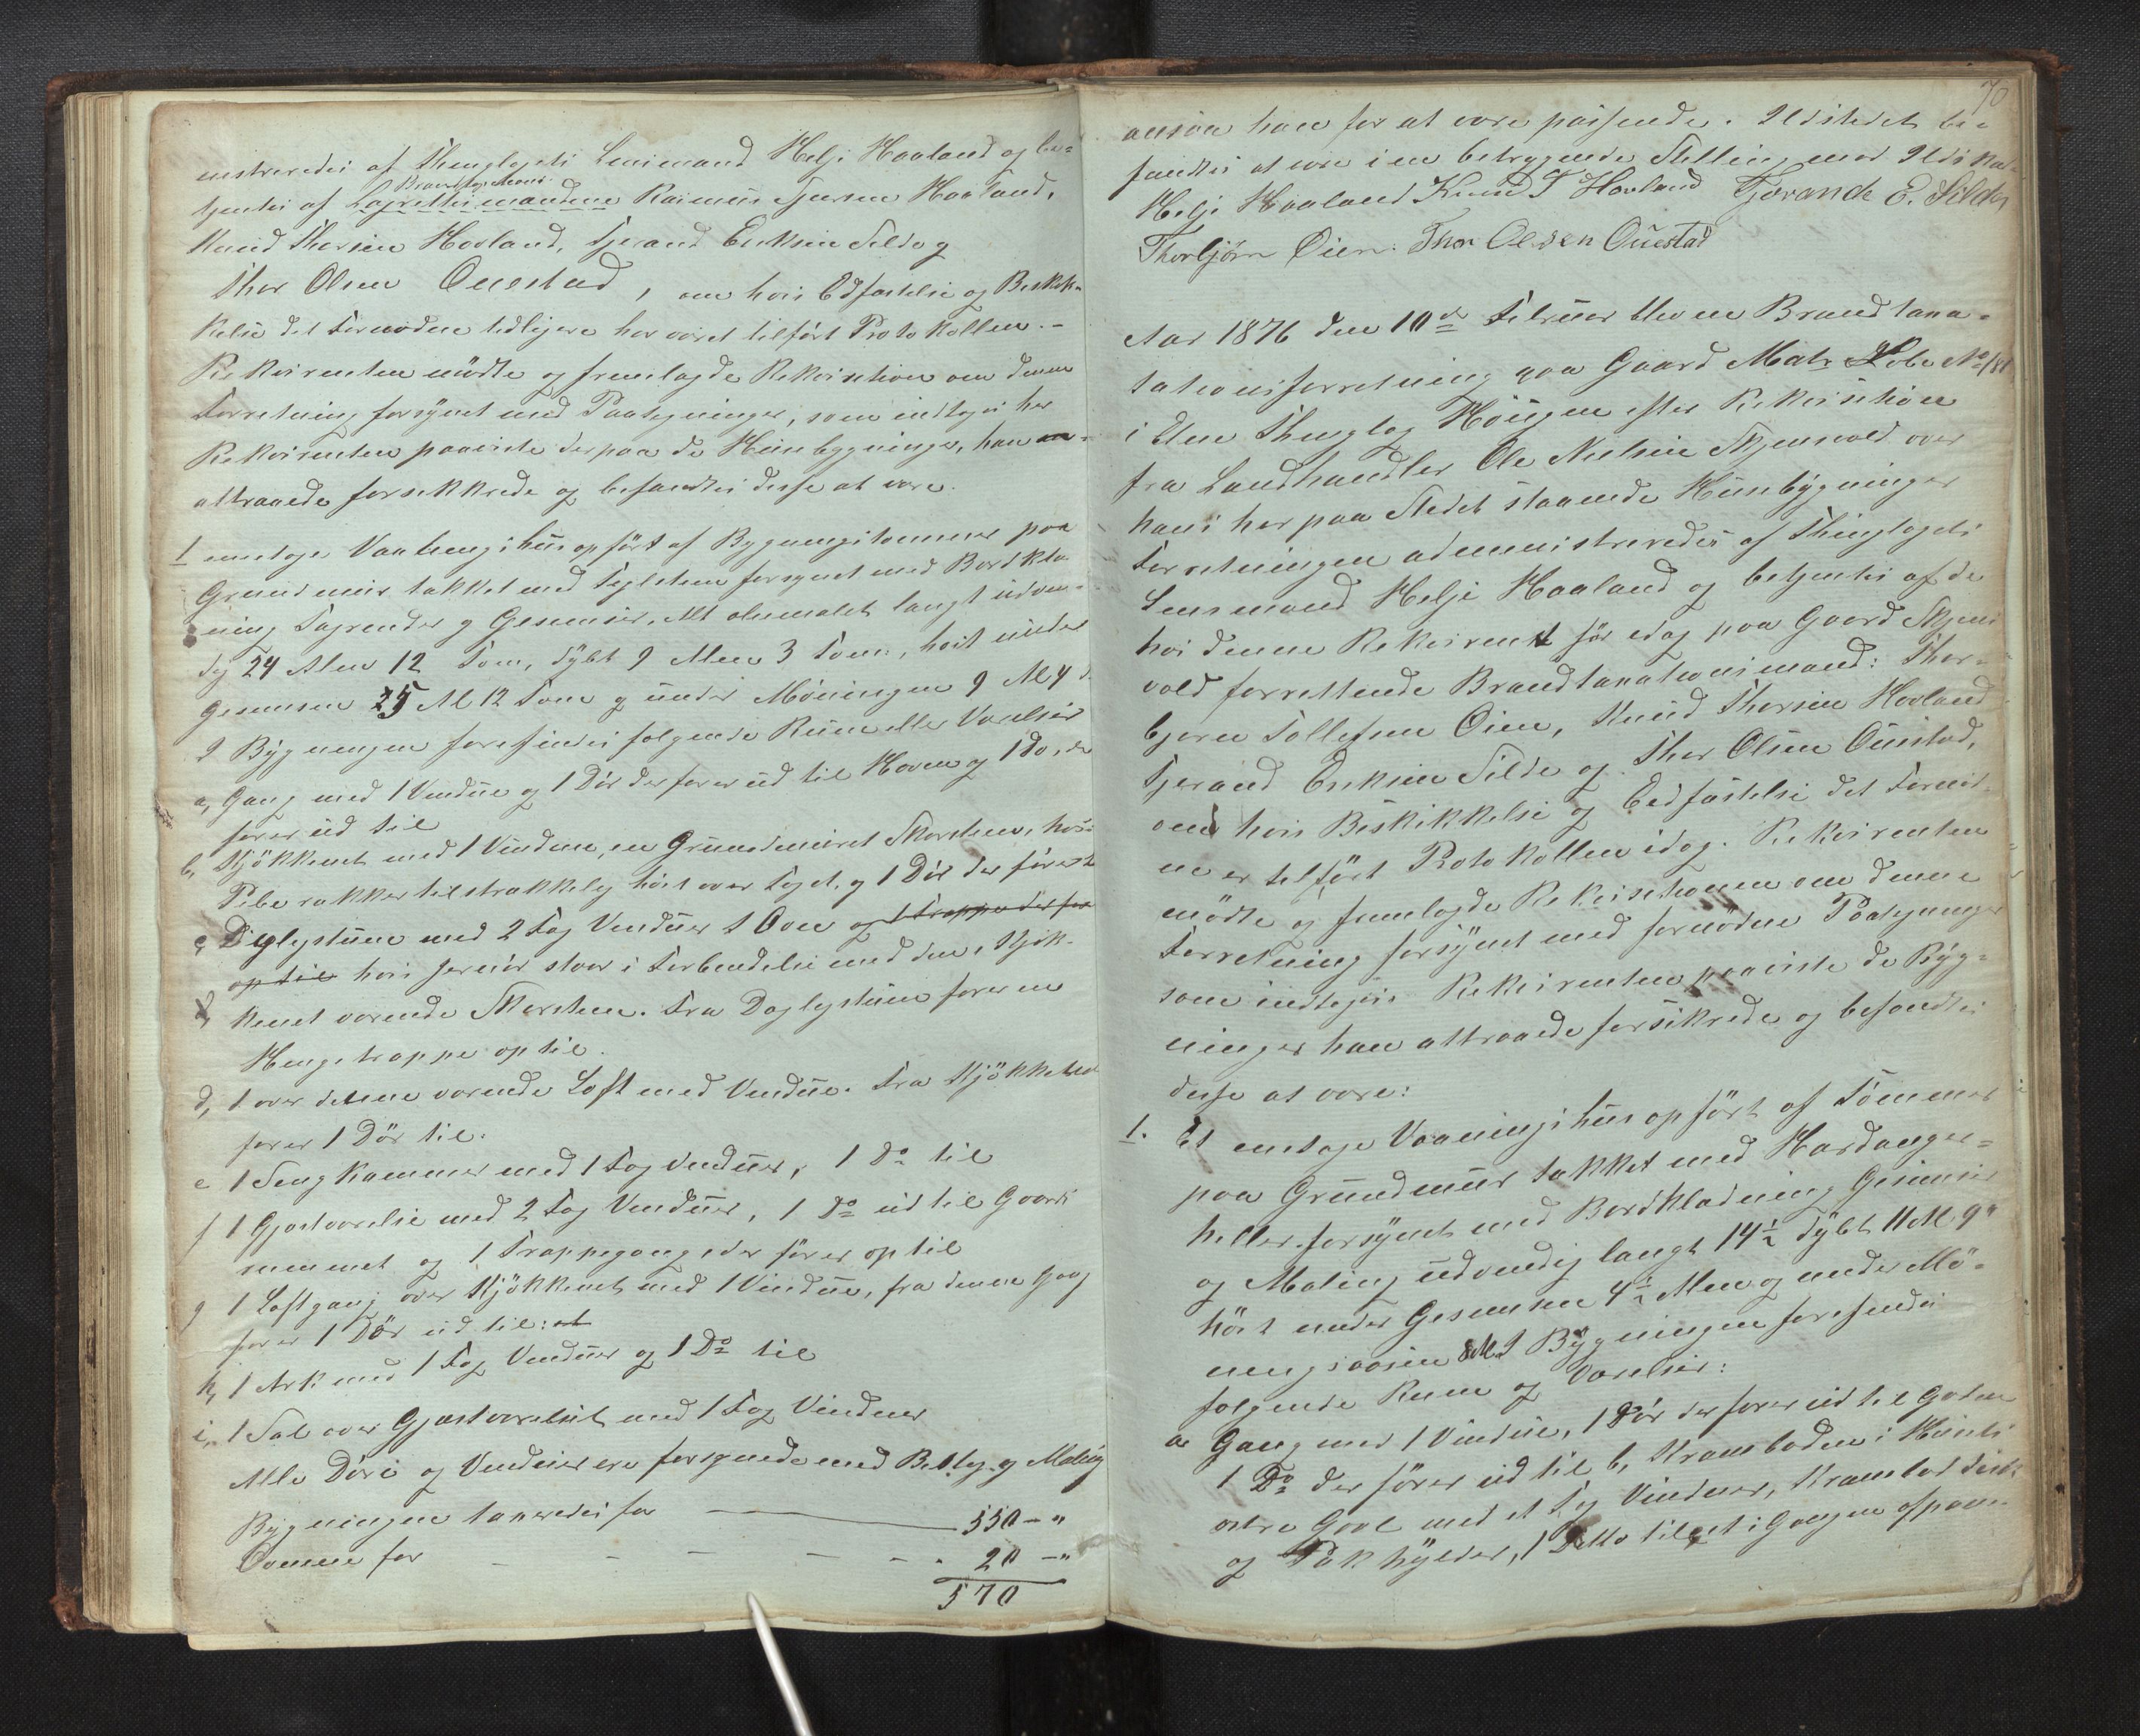 nistreredes af Thinglagets Lensmand Helje Haaland og be=
Brandtax. Mænd
tjentes af Lagrettesmændene Rasmus Tjersen Haaland,
Knud Thorsen Hovland, Tjerand Eriksen Silde og
Thor Olsen Questad, om hvis Edfæstelse og Beskik-
kelse det Fornødne tidligere har været tilført Protokollen.-
Rekvirenten mödte og fremlagde Rekvisition om denne
Forretning forsynet med Paategninger, som indtages her
Rekvirenten paaviste derpaa de Huusbygninger, han
attraaede forsikkrede og befandtes disse at være.
1 eenetage Vaaningshus opført af Bygningstømmer paa
Grundmuur takket med Teglsteen forsynet med Bordklæ
ning Tagrender og Gesimser, Alt oliemalet langt udven-
dig 24 Alen 12 Tom, dybt 9 Alen 3 Tom, höit under
Gesimsen 5 Al 12 Tom og under Möningen 9 Al 4
I Bygningen forefindes følgende Rum eller Værelser
a, Gang med 1 Vindue og 1 Dör der fører ud til Haven og 1 do, der
fører ud til
b, Kjökkenet med 1 Vindue, en Grundmuret Skorsten, hvis
Pibe rækker tilstrækkelig höit over Taget, og 1 Dör der fører t
c, Daglystuen med 2 Fag Vinduer 1 Ovn og 1 Trappe der før
op til hvis Jernrör staar i Forbindelse med den i Kjök-
kenet værende Skorsten. Fra Daglystuen fører en
Hengetrappe op til.
d, 1 over denne værende Loft med Vindue. Fra Kjökkenet
fører 1 Dör til.
e 1 Sengkammer med 1 Fag Vinduer, 1 Do til
f 1 Gjæstværelse med 2 Fag Vinduer, 1 Do ud til Gaards
rummet og 1 Trappegang der fører op til
g 1 Loftgang over Kjökkenet med 1 Vindue, fra denne Gang
fører 1 Dör ud til: et
h, 1 Ark med 1 Fag Vinduer og 1 Do til
i, 1 Sal over Gjæstværelset med 1 Fag Vinduer
Alle Döre og Vinduer ere forsynede med Beslag og Maling
Bygningen taxeredes for 550 - "
Ovnene for - - - - - - 20 - "
570
70
ansaa han for at være passende. Ildstedet be-
fandtes at være i en betryggende Stilling mod Ildska-
Helje Haaland Knud T Hovland Tjerande E. Silde,
Thorbjörn Öien. Thor Olsen Questad
Aar 1876 den 10de Februar blev en Brandtaxa-
tationsforretning paa Gaard Matr Löbe No 181
i Etne Thinglag Höugen efter Rekvisition
fra Landhandler Ole Nielsen Skjensvold over
hans her paa Stedet staaende Huusbygninger
Forretningen administreredes af Thinglagets
Lensmand Helje Haaland og betjentes af de
hos denne Rekvirent för idag paa Gaard Skjens
vold forrettende Brandtaxationsmænd: Thor-
bjørn Tollefsen Öien, Knud Thorsen Hovland
Tjerand Eriksen Silde og Thor Olsen Questad,
om hvis Beskikkelse og Eedfæstelse det Fornöd-
ne er tilført Protokollen idag. Rekvirenten
mödte og fremlagde Rekvisitionen om denne
Forretning forsynet med fornødne Paategninger
som indtages. Rekvirenten paaviste de Byg-
ninger han attraaede forsikrede og befandtes
disse at være:
1. Et eenetage Vaaningshus opført af Tömmer
paa Grundmuur takket med Hardanger-
heller forsynet med Bordklædning Gesimser
og Maling udvendig langt 14½ dybt 11 Al 9"
höit under Gesimsen 4½ Alen og under Mö-
ningsaasen 8 Al. I Bygningen forefindes
følgende Rum og Værelser:
a Gang med 1 Vindue, 1 Dör der fører ud til Gaden
1 Do der fører ud til b, Kramboden i Husets
østre Gavl med et Fag Vinduer, Krambod disk
og Pakhylder, 1 Ditto til et i Gangen afpann-